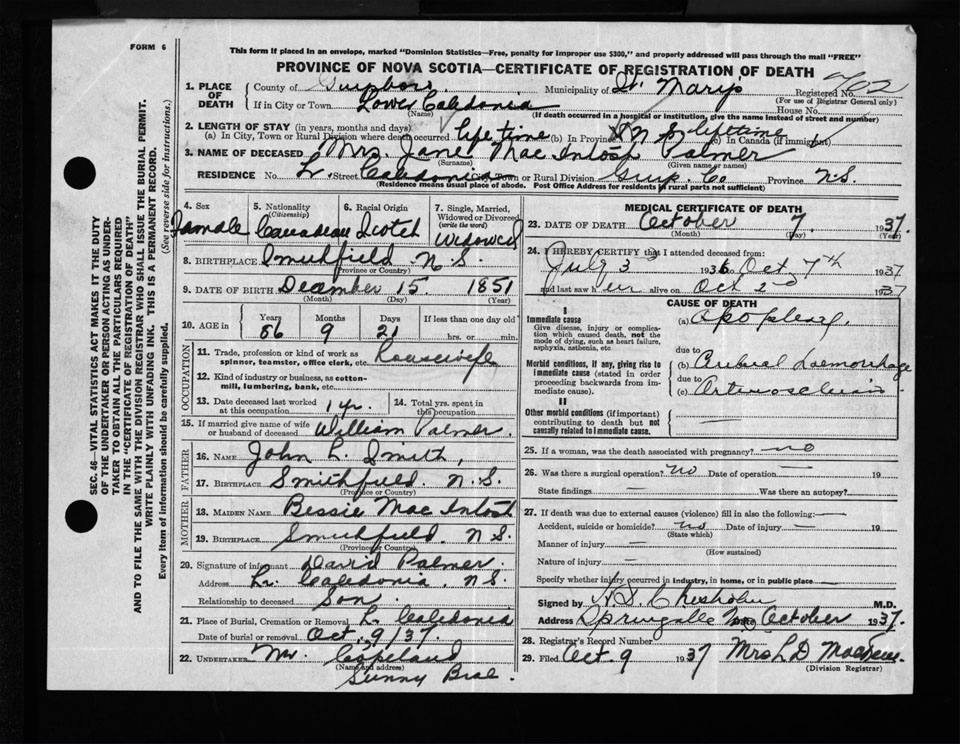 FORM 6
This form if placed in an envelope, marked "Dominion Statistics—Free, penalty for improper use $300," and properly addressed will pass through the mail "FREE"
PROVINCE OF NOVA SCOTIA—CERTIFICATE OF REGISTRATION OF DEATH
1. PLACE OF DEATH
County of Guysboro Municipality of St. Mary's Registered No.
(For use of Registrar General only)
If in City or Town Lower Caledonia House No.
(Name) (If death occurred in a hospital or institution, give the name instead of street and number)
2. LENGTH OF STAY (in years, months and days)
(a) In City, Town or Rural Division where death occurred lifetime (b) In Province lifetime (c) In Canada (if immigrant)
3. NAME OF DECEASED Mrs. Jane Mac Intosh Palmer
(Surname) (Given name or names)
RESIDENCE No. L. Street Caledonia City, Town or Rural Division Guys. Co Province N.S.
(Residence means usual place of abode. Post Office Address for residents in rural parts not sufficient)
4. Sex Famale
5. Nationality (Citizenship) Canadean
6. Racial Origin Scotch
7. Single, Married, Widowed or Divorced (write the word) Widowed
8. BIRTHPLACE Smithfield N.S.
(Province or Country)
9. DATE OF BIRTH December 15. 1851
(Month) (Day) (Year)
10. AGE in Years Months Days If less than one day old
86 9 21 hrs. or min.
OCCUPATION
11. Trade, profession or kind of work as spinner, teamster, office clerk, etc. Housewife
12. Kind of industry or business, as cotton-mill, lumbering, bank, etc.
13. Date deceased last worked at this occupation 1 yr.
14. Total yrs. spent in this occupation
15. If married give name of wife or husband of deceased William Palmer.
FATHER
16. NAME John L. Smith,
17. BIRTHPLACE Smithfield. N.S.
(Province or Country)
MOTHER
18. MAIDEN NAME Bessie Mac Intosh
19. BIRTHPLACE Smithfield. N.S.
(Province or Country)
20. Signature of informant David Palmer.
Address Lr. Caledonia, N.S.
Relationship to deceased Son.
21. Place of Burial, Cremation or Removal L. Caledonia
Date of burial or removal Oct. 9/37.
22. UNDERTAKER Mr. Copeland
(Name and address)
Sunny Brae.
MEDICAL CERTIFICATE OF DEATH
23. DATE OF DEATH October 7. 1937
(Month) (Day) (Year)
24. I HEREBY CERTIFY that I attended deceased from:
July 3 1936 to Oct 7th 1937
and last saw her alive on Oct 2nd 1937
CAUSE OF DEATH
I
Immediate cause
Give disease, injury or complication which caused death, not the mode of dying, such as heart failure, asphyxia, asthenia, etc
(a) Apoplexy,
due to
Morbid conditions, if any, giving rise to immediate cause (stated in order proceeding backwards from immediate cause).
(b) Cerebral Haemorrhage
due to
(c)
II
Other morbid conditions (if important) contributing to death but not causally related to immediate cause.
25. If a woman, was the death associated with pregnancy? no
26. Was there a surgical operation? no Date of operation — 19
State findings Was there an autopsy?
27. If death was due to external causes (violence) fill in also the following:—
Accident, suicide or homicide? no Date of injury — 19
(State which)
Manner of injury —
(How sustained)
Nature of injury —
Specify whether injury occurred in industry, in home, or in public place —
Signed by Chisholm M.D.
Address October 1937.
28. Registrar's Record Number
29. Filed Oct. 9 1937 Mrs L D
(Division Registrar)
SEC. 46—VITAL STATISTICS ACT MAKES IT THE DUTY
OF THE UNDERTAKER OR PERSON ACTING AS UNDERTAKER TO OBTAIN ALL THE PARTICULARS REQUIRED
IN THE "CERTIFICATE OF REGISTRATION OF DEATH"
AND TO FILE THE SAME WITH THE DIVISION REGISTRAR WHO SHALL ISSUE THE BURIAL PERMIT.
WRITE PLAINLY WITH UNFADING INK. THIS IS A PERMANENT RECORD.
Every item of information should be carefully supplied. (See reverse side for instructions.)